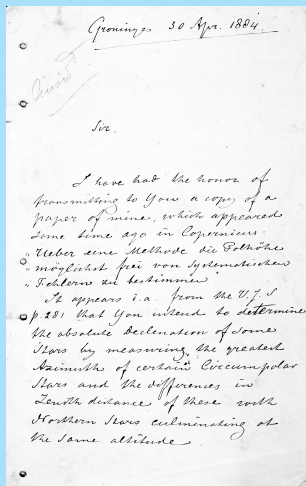 Groningen 30 Apr. 1884.
Sir.
I have had the honor of
transmitting to You a copy of a
paper of mine, which appeared
some time ago in Copernicus:
„Ueber eine Methode die Polhöhe
„möglichst frei von Systematischen
„Fehlern zu bestimmen"
It appears i.a. from the V.J.S
p. 281 that You intend to determine
the absolute Declination of some
Stars by measuring the greatest
Azimuth of certain Circumpolar
Stars and the differences in
Zenith distance of these with
Northern Stars culminating at
the same altitude.